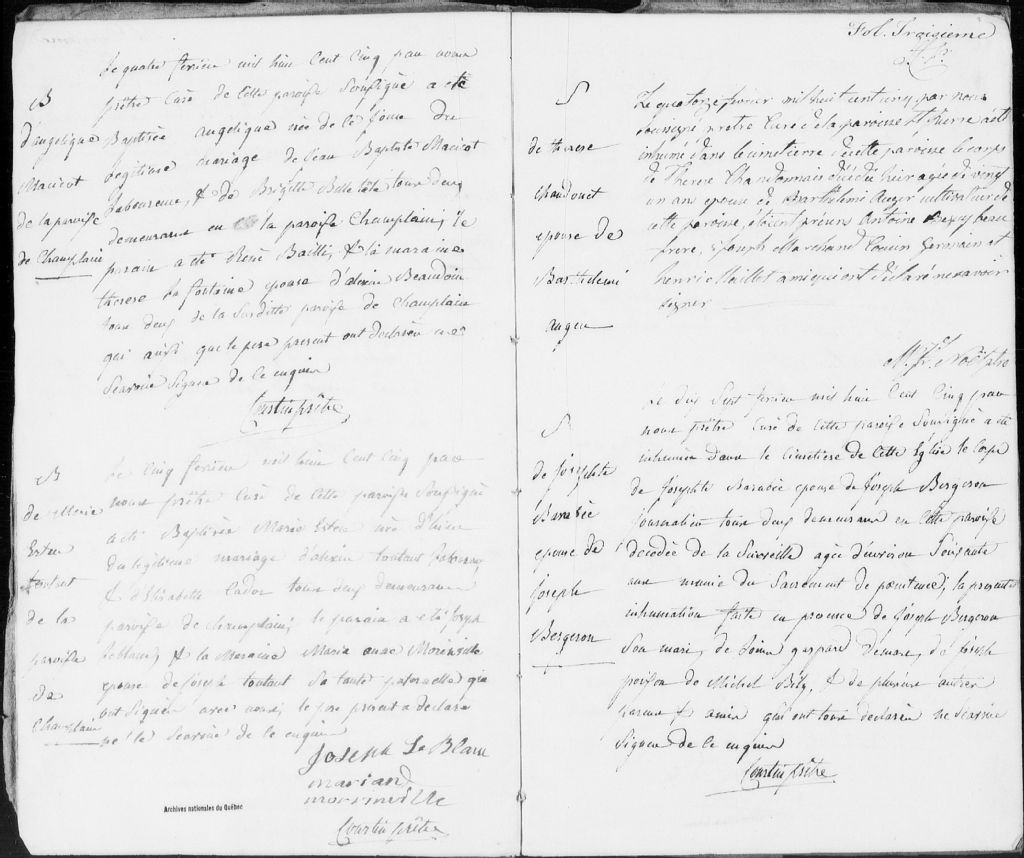 Le quatre fevrier mil huit Cent Cinq par nous
prêtre Curé de Cette paroisse Soussigné a eté
B
d'angelique
Macicot
de la paroisse
de Champlain
Baptisée angelique née de ce jour du
legitime mariage de jean Baptiste Macicot
laboureur, & de Brigitte Belletête tous deux
demeurans en la paroisse Champlain, le
parain a eté René Bailli, & la maraine
therese la fontaine epouse d'alexin Beaudoin
tous deux de la Susditte paroisse de Champlain
qui ainsi que le pere present ont declarés ne
Scavoir Signer de ce enquis
Courtin prêtre
B
de Marie
Ester
toutant
de la
paroisse
de
Champlain
Le Cinq fevrier mil huit Cent Cinq par
nous prêtre Curé de Cette paroisse Soussigné
a eté Baptisée Marie Ester née d'hier
du legitime mariage d'alexin toutant laboureur
& d'Elisabette Cadot tous deux demeurans
paroisse de champlain; le parain a eté joseph
leblanc, & la Maraine Marie anne Morinville
epouse de joseph toutant Sa tante paternelle qui
ont Signer avec nous; le pere present a declaré
ne le Scavoir de ce enquis
Joseph Le Blanc
mariane
morinville
Courtin prêtre
Archives nationales du Québec
Fol. Troisieme
S
de therese
chaudonet
epouse de
Barthelemi
auger
Le quatorze fevrier mil huit cent cinq, par nous
soussigné pretre Curé de la paroisse St Pierre a eté
inhumé dans le cimetierre de cette paroisse le corps
de Therese Chandonnais décédée hier agée de vingt
un ans epouse de Barthelemi Auger cultivateur de
cette paroisse, etoient présens Antoine beau
frere, Joseph Marchand Cousin Germain et
henri Maillot ami qui ont déclaré ne savoir
signer
Mr. Fr. Noël ptre
S
de josephte
Barabée
epouse de
joseph
Bergeron
Le dix Sept fevrier mil huit Cent Cinq par
nous prêtre Curé de Cette paroisse Soussigné a eté
inhumée dans le Cimetière de Cette Église le Corps
de josephte Barabée epouse de joseph Bergeron
journalier tous deux demeurans en Cette paroisse
decedée de la Surveille agée d'environ Soixante
ans munie du Sacrement de penitence; la presente
inhumation faite en presence de joseph Bergeron
Son mari, de joseph
poisson de Michel & de plusieurs autres
parens & amis qui ont tous declarés ne Scavoir
Signer de ce enquis
Courtin prêtre